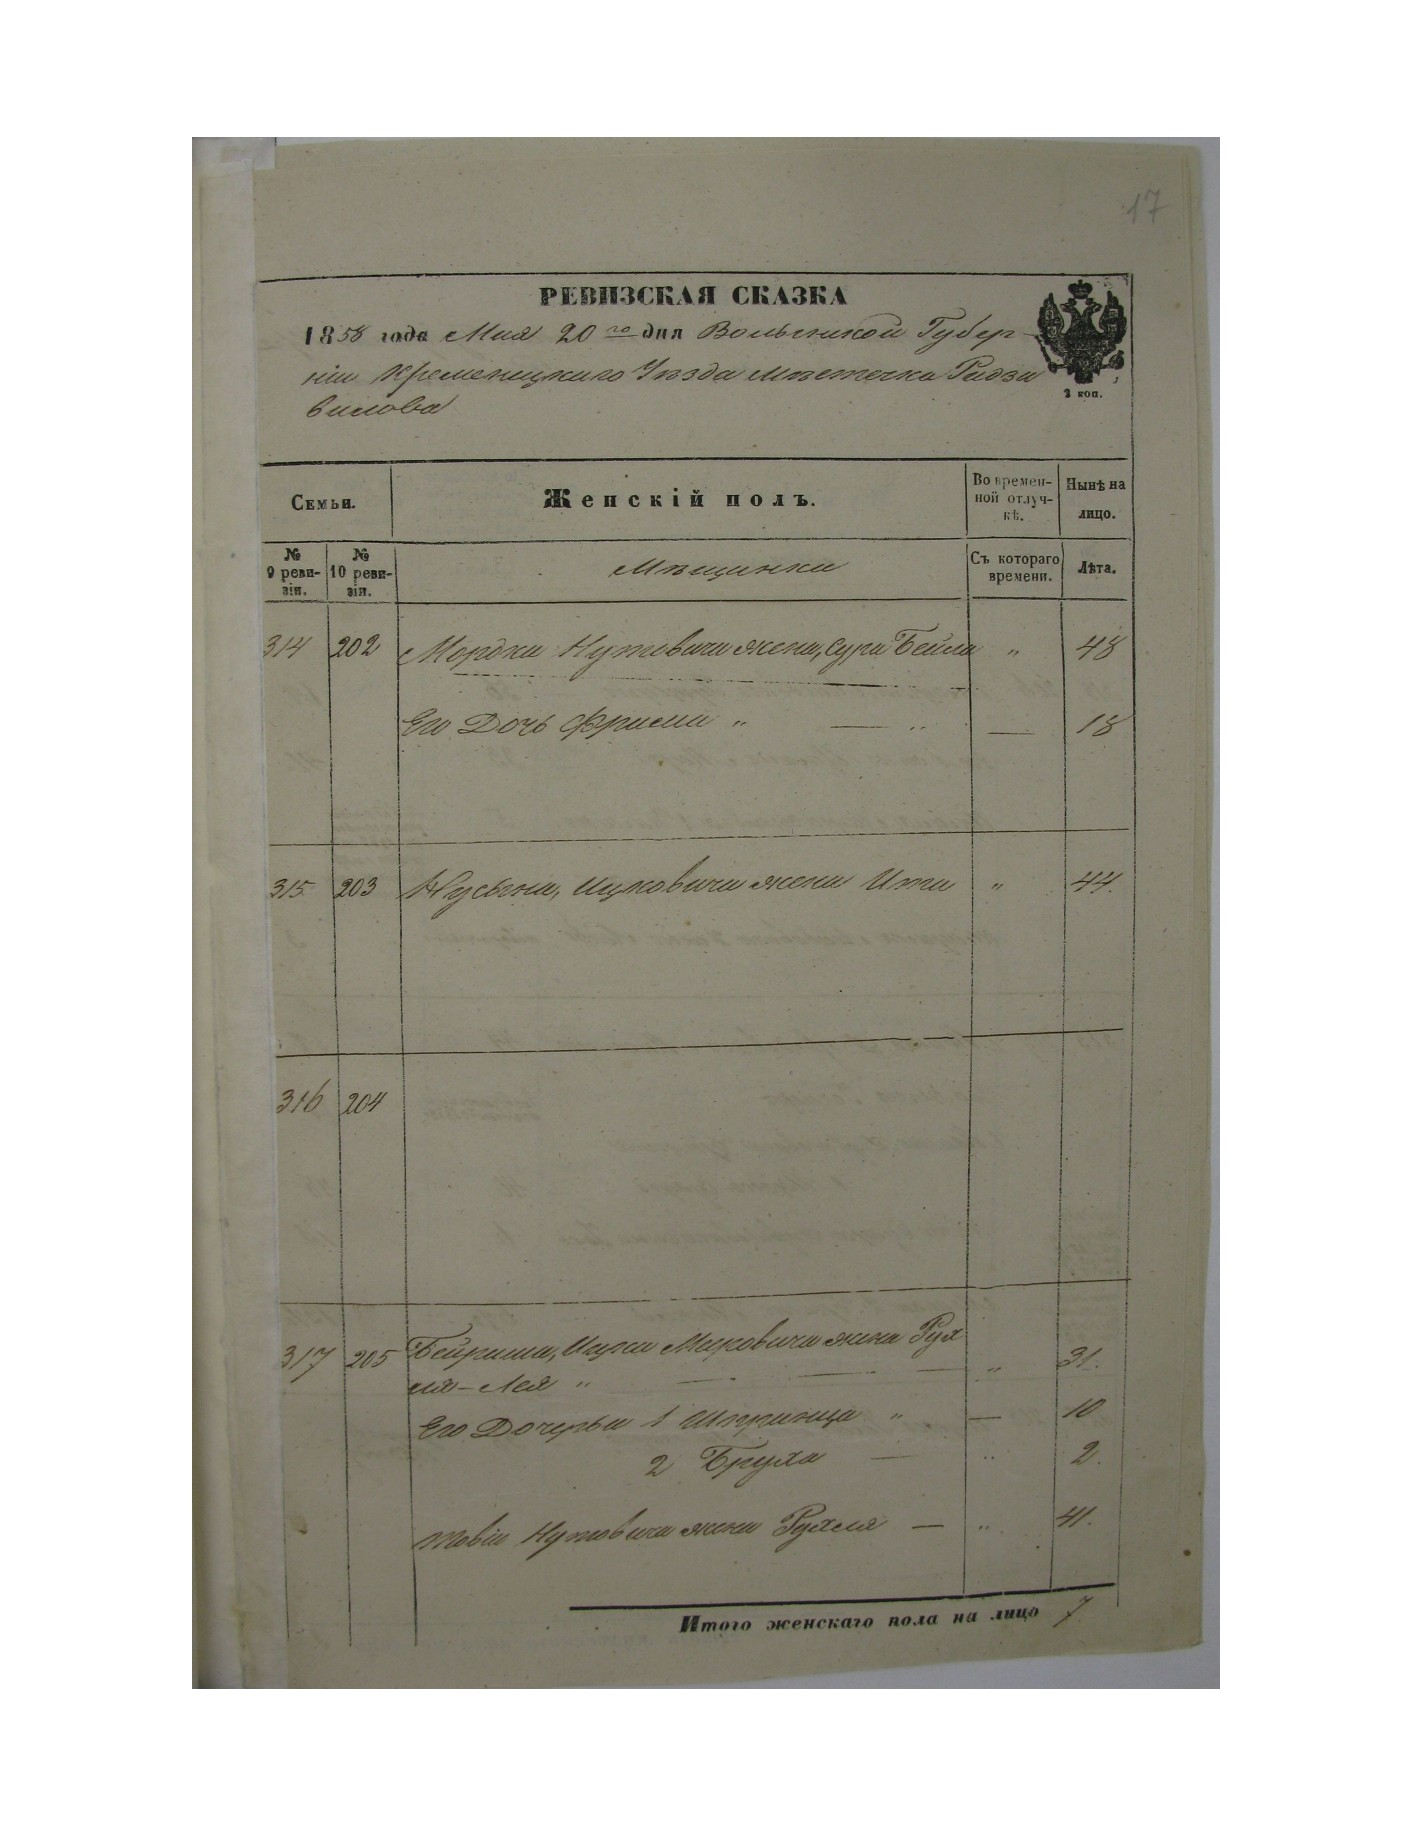 17
РЕВИЗСКАЯ СКАЗКА
1858 года Мая 20го дня Волынской Губер-
ніи Кременецкаго Уѣзда мѣстечка Радзи
вилова
2 коп.
Семьи.
Женскій полъ.
Во времен-
ной отлуч-
кѣ.
Нынѣ на
лицо.
№
9 реви-
зіи.
№
10 реви-
зіи.
Мѣщанки
Съ котораго
времени.
Лѣта.
314 202 Мордка Нутовича жена, Сура Бейла " 48
Его Дочь Фрима " — " — 18
315 203 Нусына, Ицковича жена Ита " 44.
316 204
317 205 Бейриша, Ицка Мешковича жена Рух
ля-Лея " — — — " 31.
Его Дочерьи 1 Шпринца " — 10
2 Бруха — " 2.
Товіи Нутовича жена Рухля — " 41.
Итого женскаго пола на лицо 7